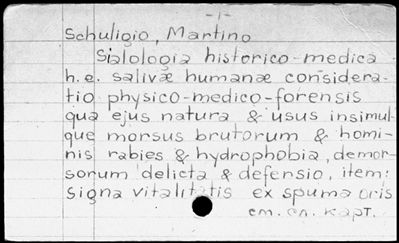 -1-
Schuligio, Martino
Sialologia historico-medica
h.e. salivæ humanæ considera-
tio physico-medico-forensis
qua ejus natura & usus insimul-
que morsus brutorum & homi-
nis rabies & hydrophobia, demor-
sorum delicta & defensio, item:
signa vitalitatis ex spuma oris
см. сл. карт.